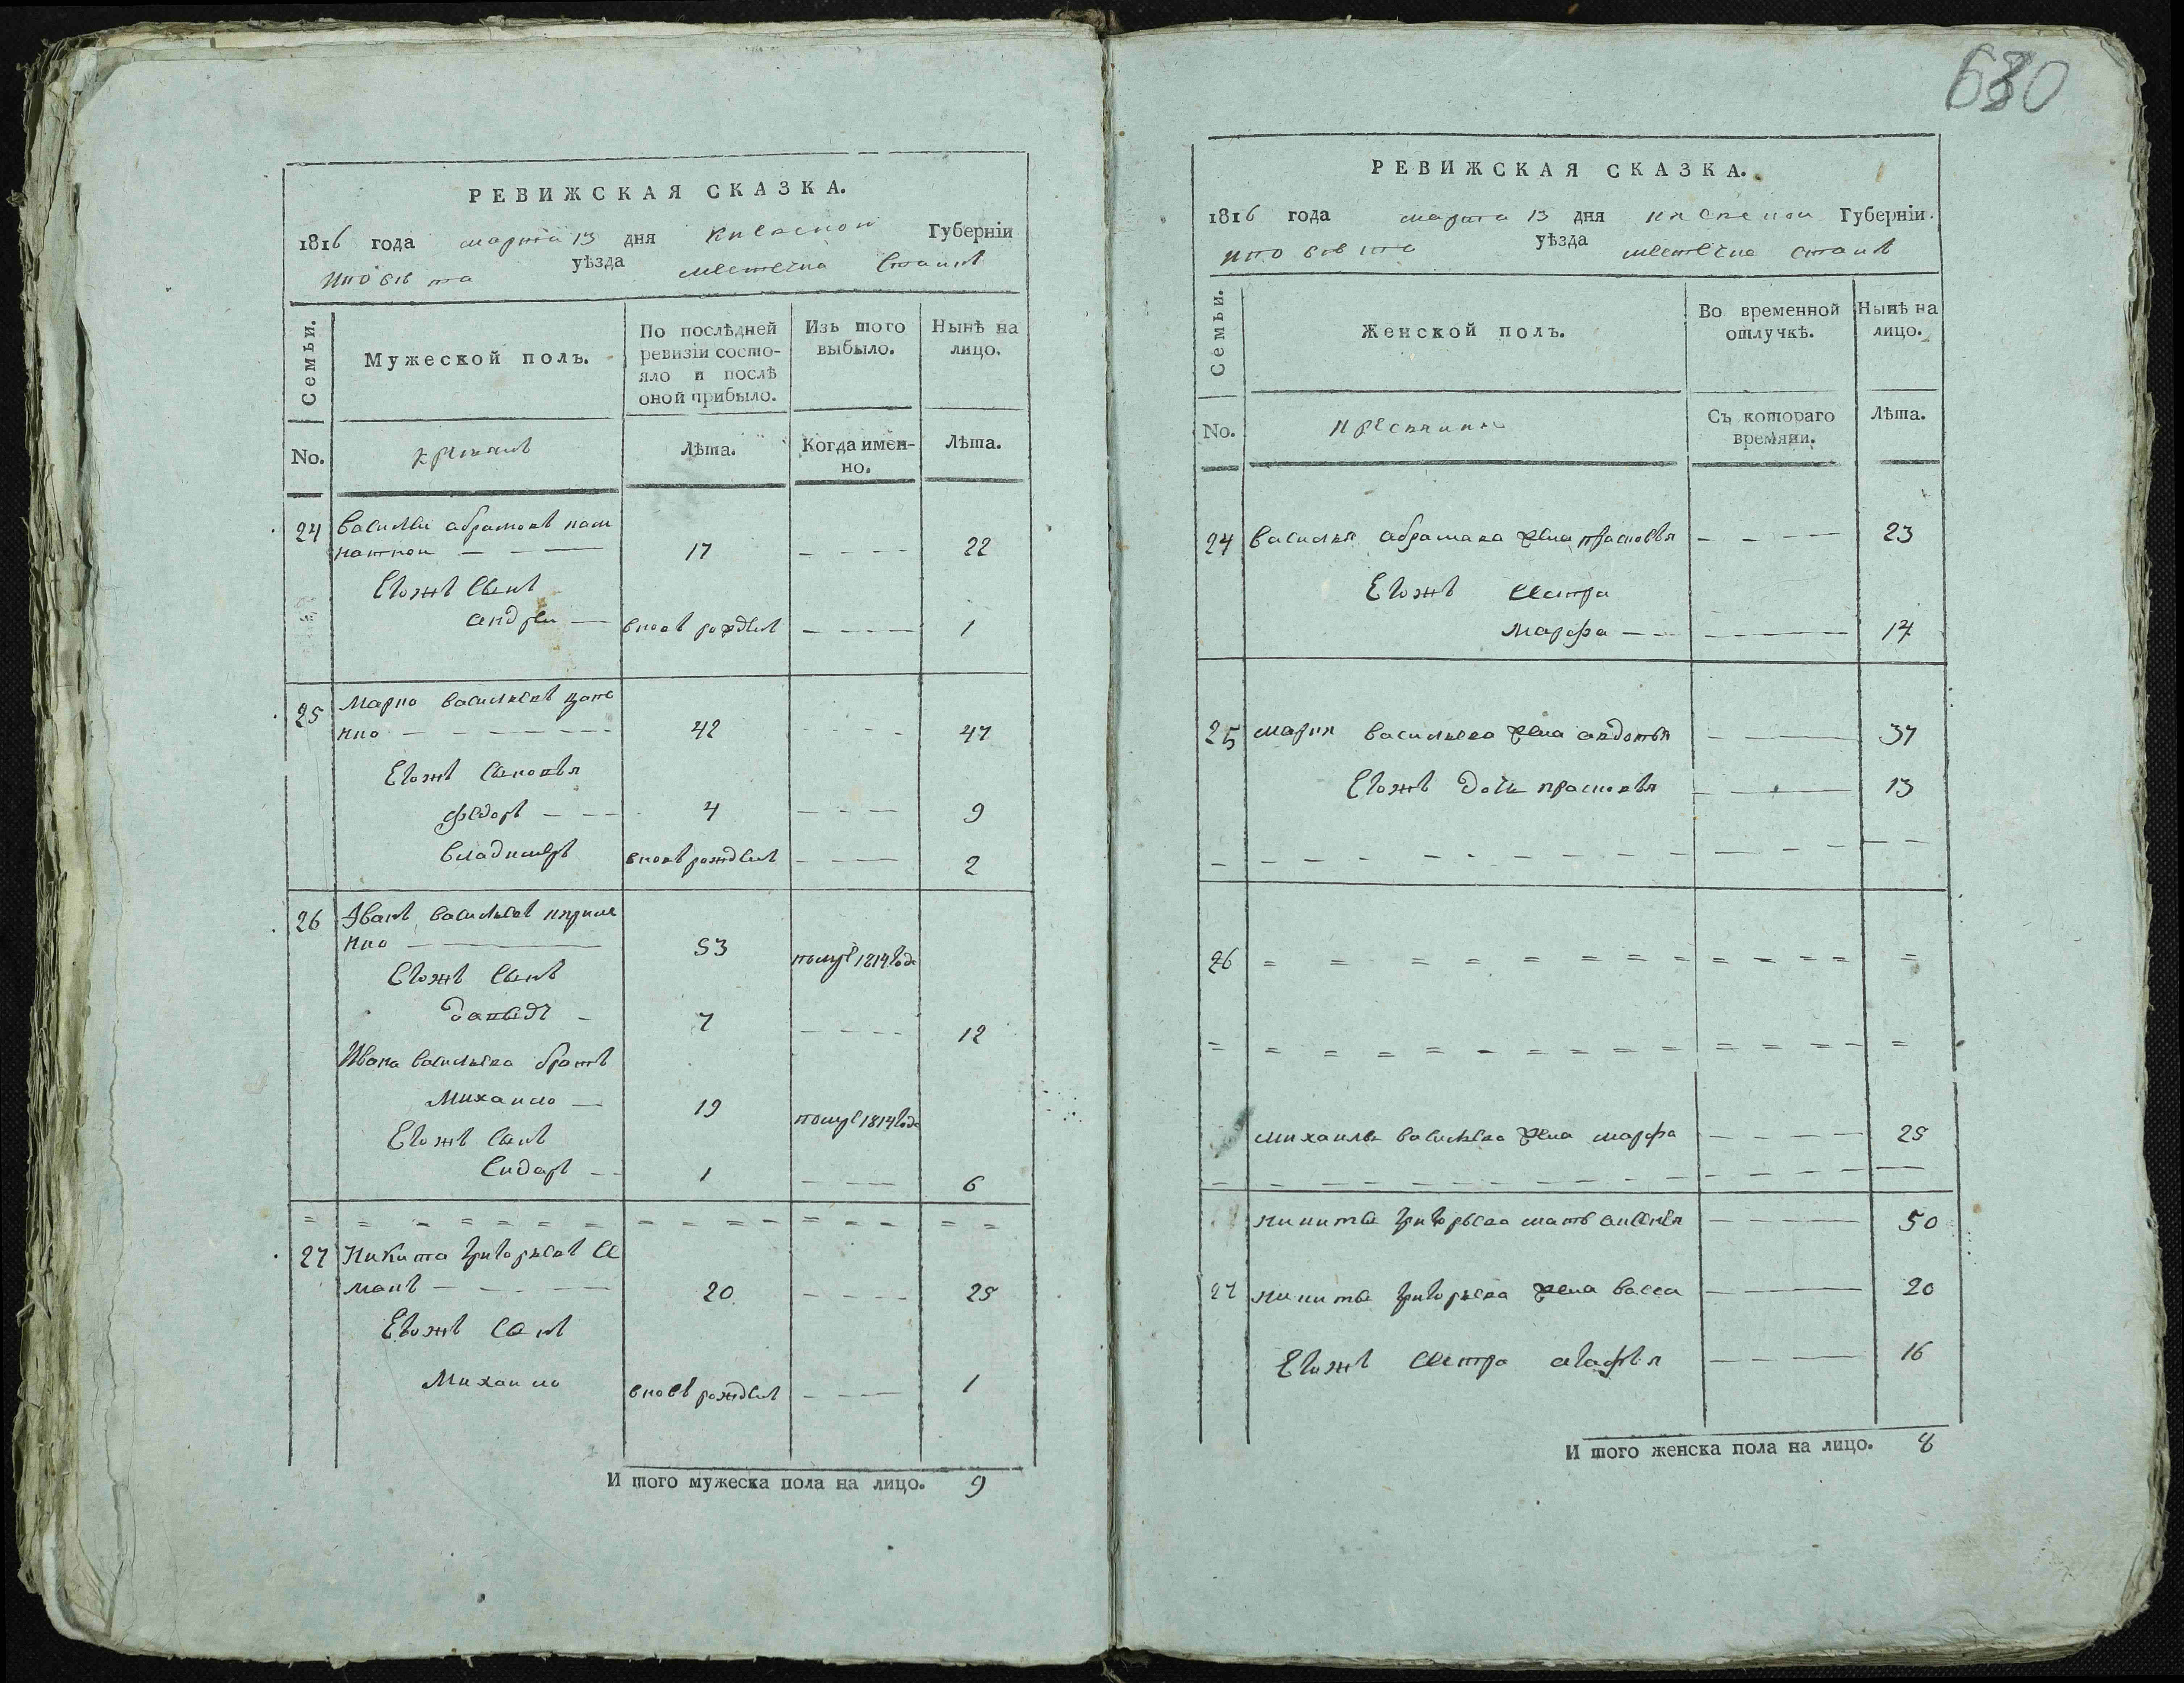 680
РЕВИЖСКАЯ СКАЗКА.
1816 года марта 13 дня Киевской Губерніи
уѣзда местечка
Семьи.
Мужеской полъ.
По послѣдней ревизіи состояло и послѣ оной прибыло.
Изъ того выбыло.
Нынѣ на лицо.
No.
Лѣта.
Когда именно.
Лѣта.
24 Василеи абрамовъ
17 - - - - 22
Егожъ сынъ
андреи — вновъ рожденъ - - - - 1
25 Марко васильевъ
42 - - - - 47
Егожъ сыновья
федоръ - - - 4 - - - 9
владимеръ вновъ рожденъ - - - 2
26 Иванъ васильевъ
53 помре 1814 года
Егожъ сынъ
давидъ - 7 - - - - 12
Ивана васильева братъ
михаило — 19 помре 1814 года
Егожъ сынъ
сидоръ - - 1 - - - 6
27 Никита григорьевъ се
манъ - - - - 20 - - - - 25
Егожъ сынъ
Михаило вновъ рожденъ - - - 1
И того мужеска пола на лицо. 9
РЕВИЖСКАЯ СКАЗКА.
1816 года марта 13 дня Киевской Губерніи.
уѣзда местечка
Семьи.
Женской полъ.
Во временной отлучкѣ.
Нынѣ на лицо.
No.
Съ котораго времяни.
Лѣта.
24 василья абрамова жена прасковья - - - - 23
Егожъ сестра
марфа - - - 17
25 марка васильева жена авдотья - — 37
Егожъ дочь прасковья - — 13
26 = = = = = = = = =
михаила васильева жена марфа - - - - 25
никиты григорьева мать - - - 50
27 никиты григорьева жена васса — 20
Егожъ сестра агафья — 16
И того женска пола на лицо. 8